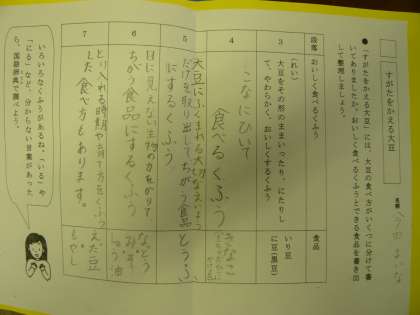 すがたをかえる大豆
名前
●「すがたをかえる大豆」には、大豆の食べ方がいくつに分けて書
いてありましたか。おいしく食べるくふうとできる食品を書き出
して整理しましょう。
段落
おいしく食べるくふう
食品
3
(れい)
大豆をその形のままいったり、にたりし
て、やわらかく、おいしくするくふう
いり豆
に豆(黒豆)
4
こなにひいて
食べるくふう
きなこ
5
大豆にふくまれる大切なえいよう
だけを取り出してちがう食品
にするくふう
とうふ
6
目に見えない生物の力をかりて
ちがう食品にするくふう
なっとう
みそ
しょう油
7
とり入れる時期や育て方をくふう
した食べ方もあります。
えだ豆
もやし
いろいろなくふうがあるね。「いる」や
「にる」など、分からない言葉があった
ら、国語辞典で調べよう。